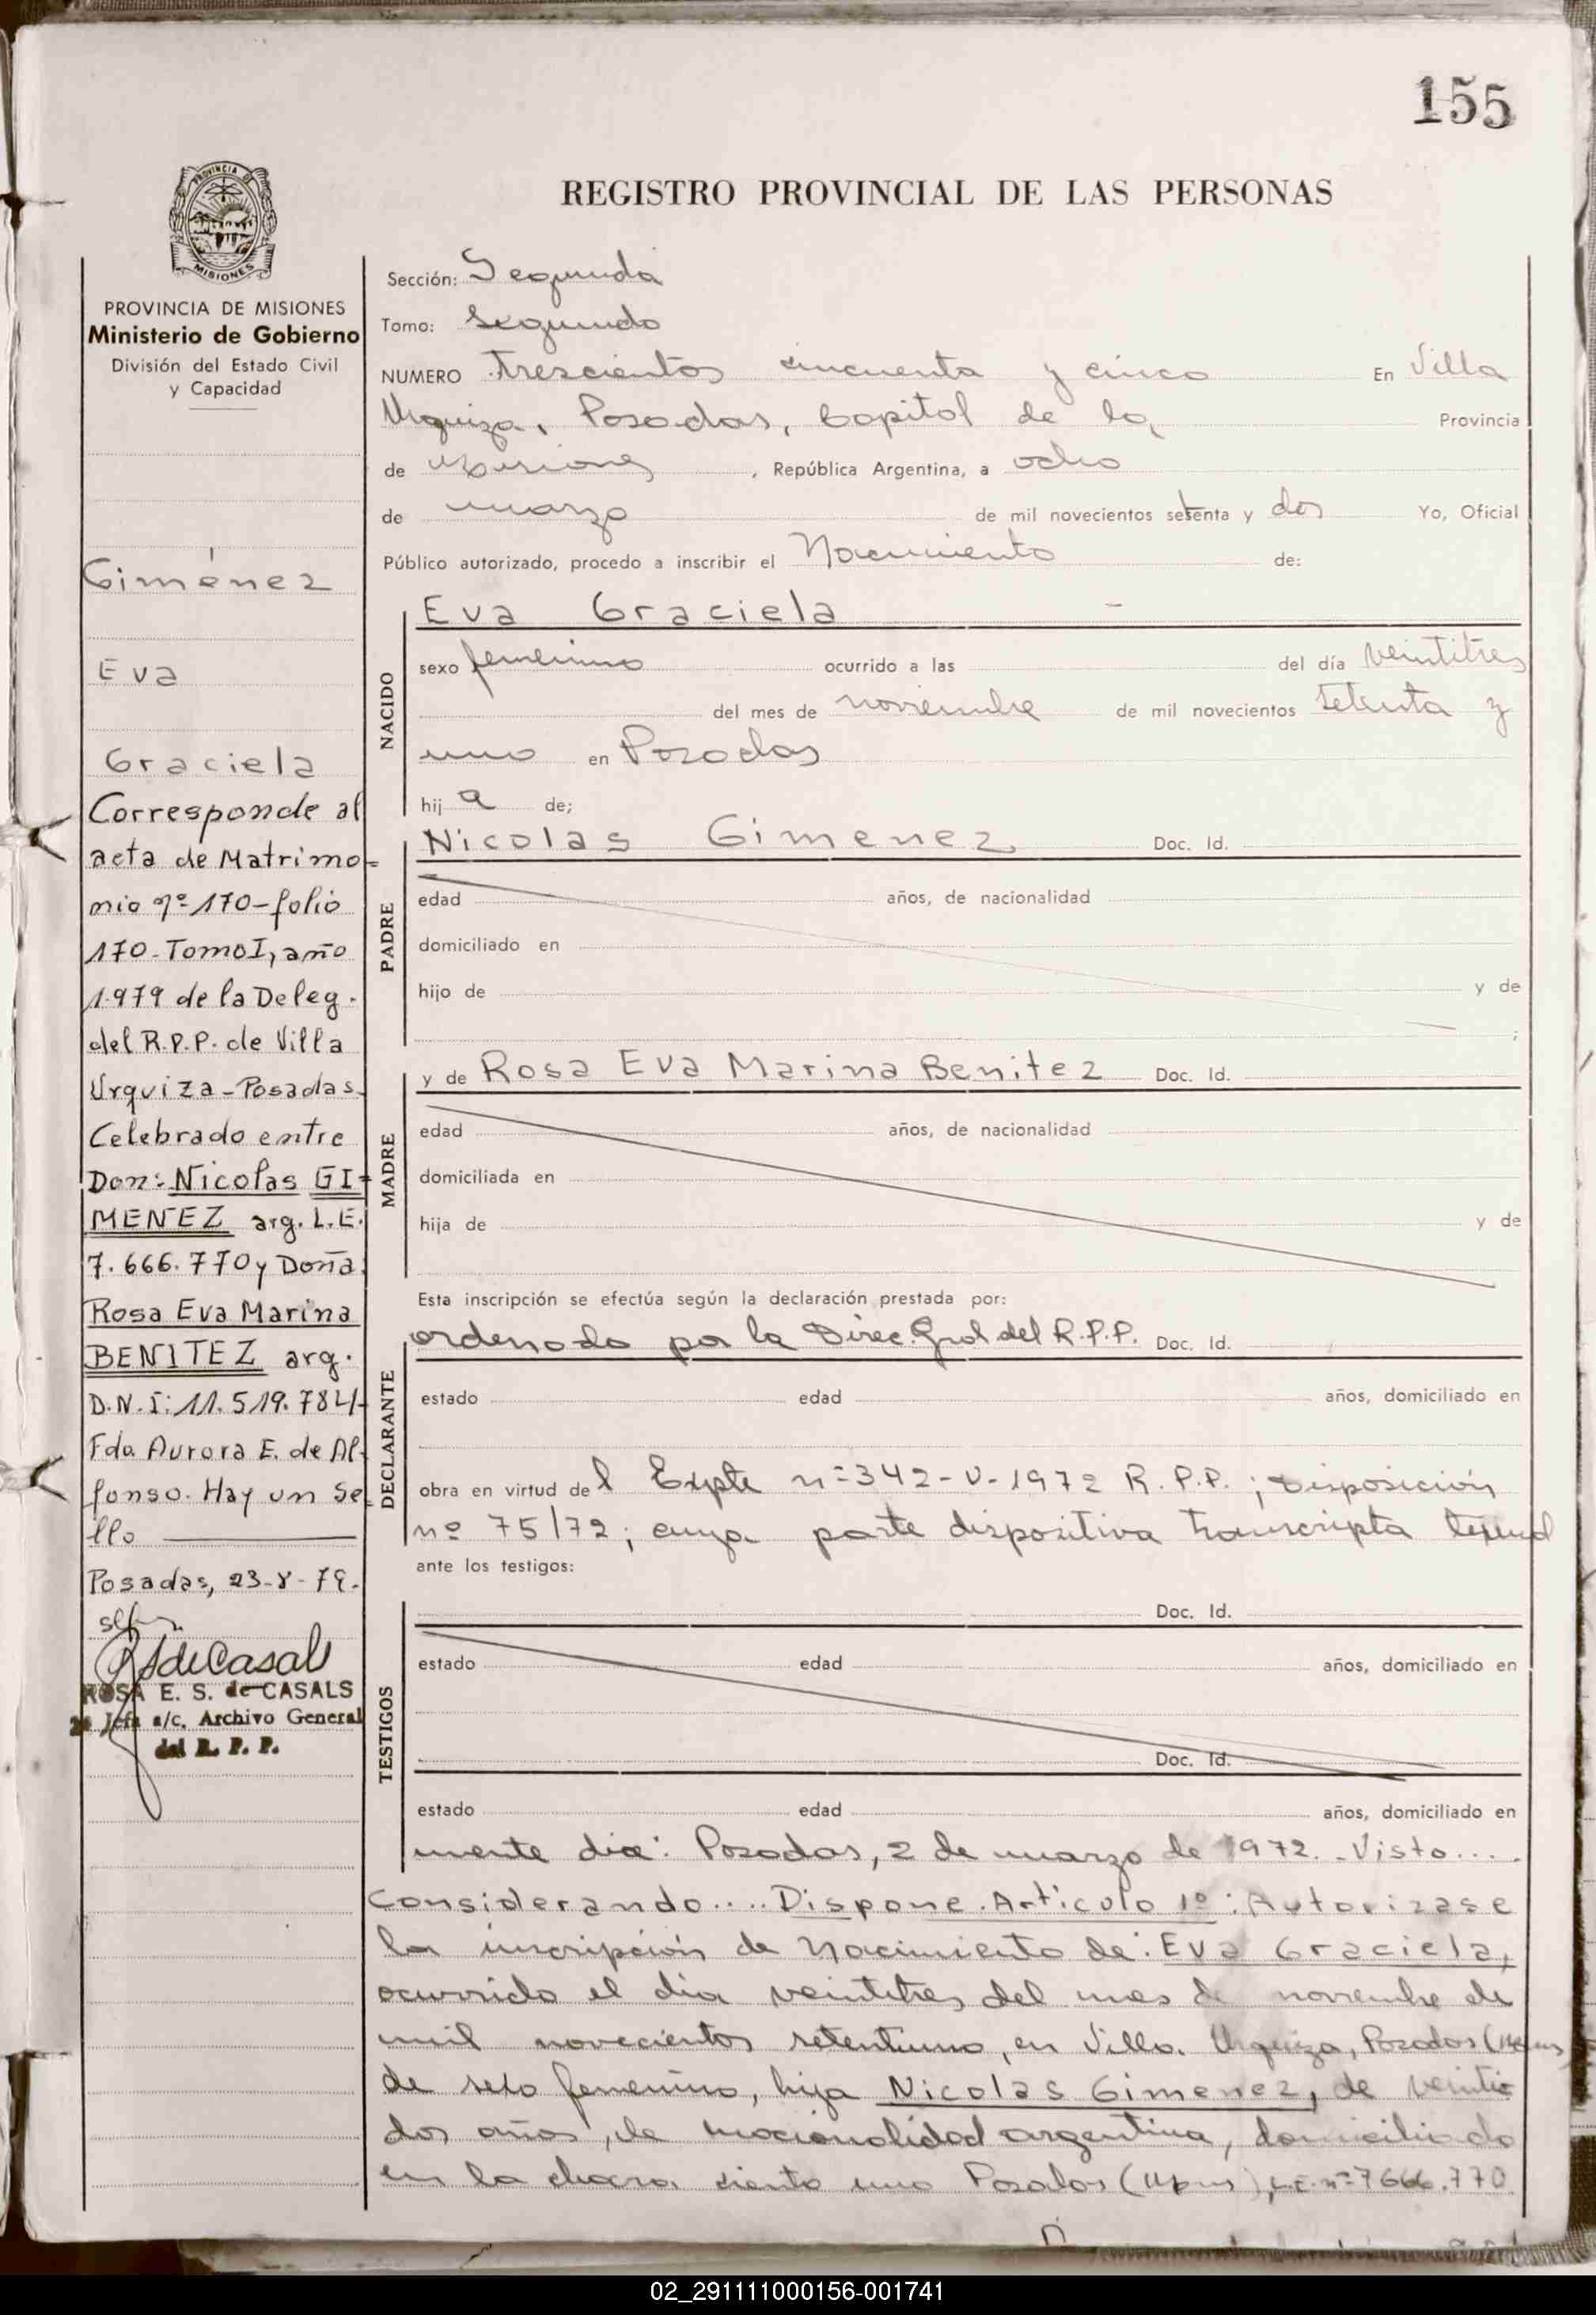 155
REGISTRO PROVINCIAL DE LAS PERSONAS
PROVINCIA DE
MISIONES
PROVINCIA DE MISIONES
Ministerio de Gobierno
División del Estado Civil
y Capacidad
Giménez
Eva
Graciela
Corresponde al
acta de Matrimo=
nio nº 170-folio
170-Tomo I, año
1.979 de la Deleg.
del R.P.P. de Villa
Urquiza-Posadas.
Celebrado entre
Don: Nicolas GI-
MENEZ arg. L.E.
7.666.770 y Doña:
Rosa Eva Marina
BENITEZ arg.
D.N.I: 11.519.784-
Fdo. Aurora E. de Al-
fonso. Hay un Se-
llo
Posadas, 23-8-79.
ROSA E. S. de CASALS
Jefa a/c. Archivo General
del R. P. P.
Sección: Segunda
Tomo: Segundo
NUMERO Trescientos cincuenta y cinco En Villa
Urquiza, Posadas, Capital de la Provincia
de Misiones, República Argentina, a ocho
de marzo de mil novecientos setenta y dos Yo, Oficial
Público autorizado, procedo a inscribir el Nacimiento de:
NACIDO
Eva Graciela -
sexo femenino ocurrido a las del día veintitres
del mes de noviembre de mil novecientos setenta y
uno en Posadas
hij a de;
PADRE
Nicolas Gimenez Doc. Id.
edad años, de nacionalidad
domiciliado en
hijo de y de
;
MADRE
y de Rosa Eva Marina Benitez Doc. Id.
edad años, de nacionalidad
domiciliada en
hija de y de
Esta inscripción se efectúa según la declaración prestada por:
DECLARANTE
ordenado por la Direc. Gral del R.P.P. Doc. Id.
estado edad años, domiciliado en
obra en virtud del Expte nº 342-V-1972 R.P.P.; Disposición
nº 75/72; cuya parte dispositiva transcripta textual
ante los testigos:
TESTIGOS
Doc. Id.
estado edad años, domiciliado en
Doc. Id.
estado edad años, domiciliado en
mente dice: Posadas, 2 de marzo de 1972. Visto....
Considerando.... Dispone. Artículo 1º: Autorizase
la inscripción de Nacimiento de: Eva Graciela,
ocurrido el dia veintitres del mes de noviembre de
mil novecientos setentiuno, en Villa Urquiza, Posadas
de sexo femenino, hija Nicolas Gimenez, de veinti
dos años, de nacionalidad argentina, domiciliado
en la chacra ciento uno Posadas nº 7666.770
02_291111000156-001741